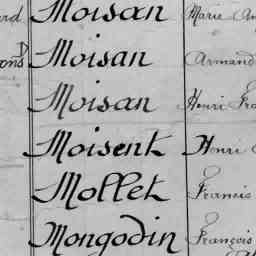 Moisan Marie
Moisan Armand
Moisan Henri
Moisent Henri
Mollet Francis
Mongodin François